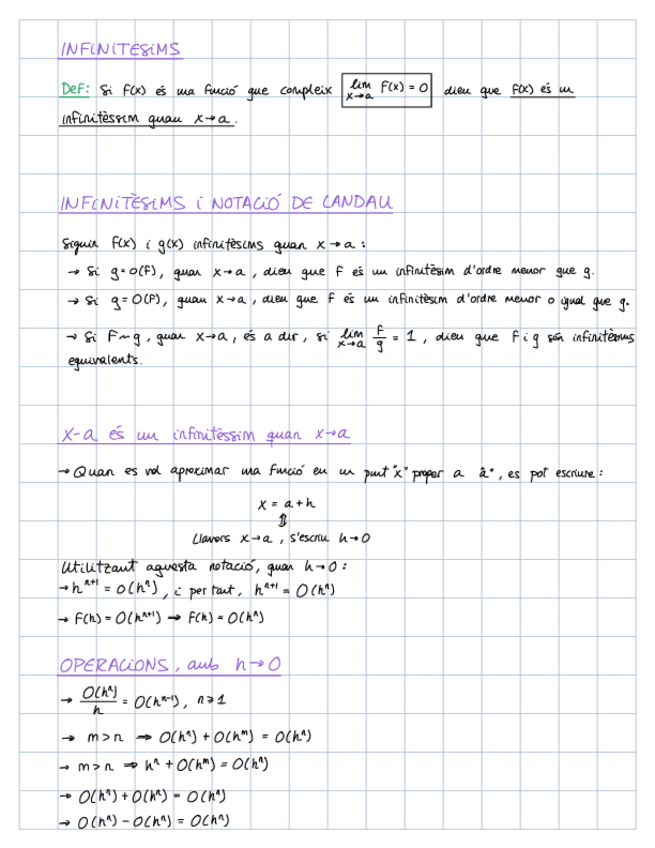 INFINITESIMS
DEF: Si F(x) és una funció que compleix lim x→a F(x) = 0 diem que f(x) és un
infinitèssim quan x→a.
INFINITÈSIMS i NOTACIÓ DE LANDAU
Siguin F(x) i g(x) infinitèsims quan x→a:
→ Si g=o(F), quan x→a, diem que F és un infinitèsim d'ordre menor que g.
→ Si g=O(F), quan x→a, diem que F és un infinitèsim d'ordre menor o igual que g.
→ Si F~g, quan x→a, és a dir, si lim x→a F/g = 1, diem que F i g són infinitèsims
equivalents.
x-a és un infinitèssim quan x→a
→ Quan es vol aproximar una funció en un punt "x" proper a "a", es pot escriure:
x = a+h
⇕
Llavors x→a, s'escriu h→0
Utilitzant aquesta notació, quan h→0:
→ hⁿ⁺¹ = o(hⁿ), i per tant, hⁿ⁺¹ = O(hⁿ)
→ F(h) = O(hⁿ⁺¹) ⇒ F(h) = O(hⁿ)
OPERACIONS, amb h→0
→ O(hⁿ)/h = O(hⁿ⁻¹), n≥1
→ m>n ⇒ O(hⁿ) + O(hᵐ) = O(hⁿ)
→ m>n ⇒ hⁿ + O(hᵐ) = O(hⁿ)
→ O(hⁿ) + O(hⁿ) = O(hⁿ)
→ O(hⁿ) - O(hⁿ) = O(hⁿ)